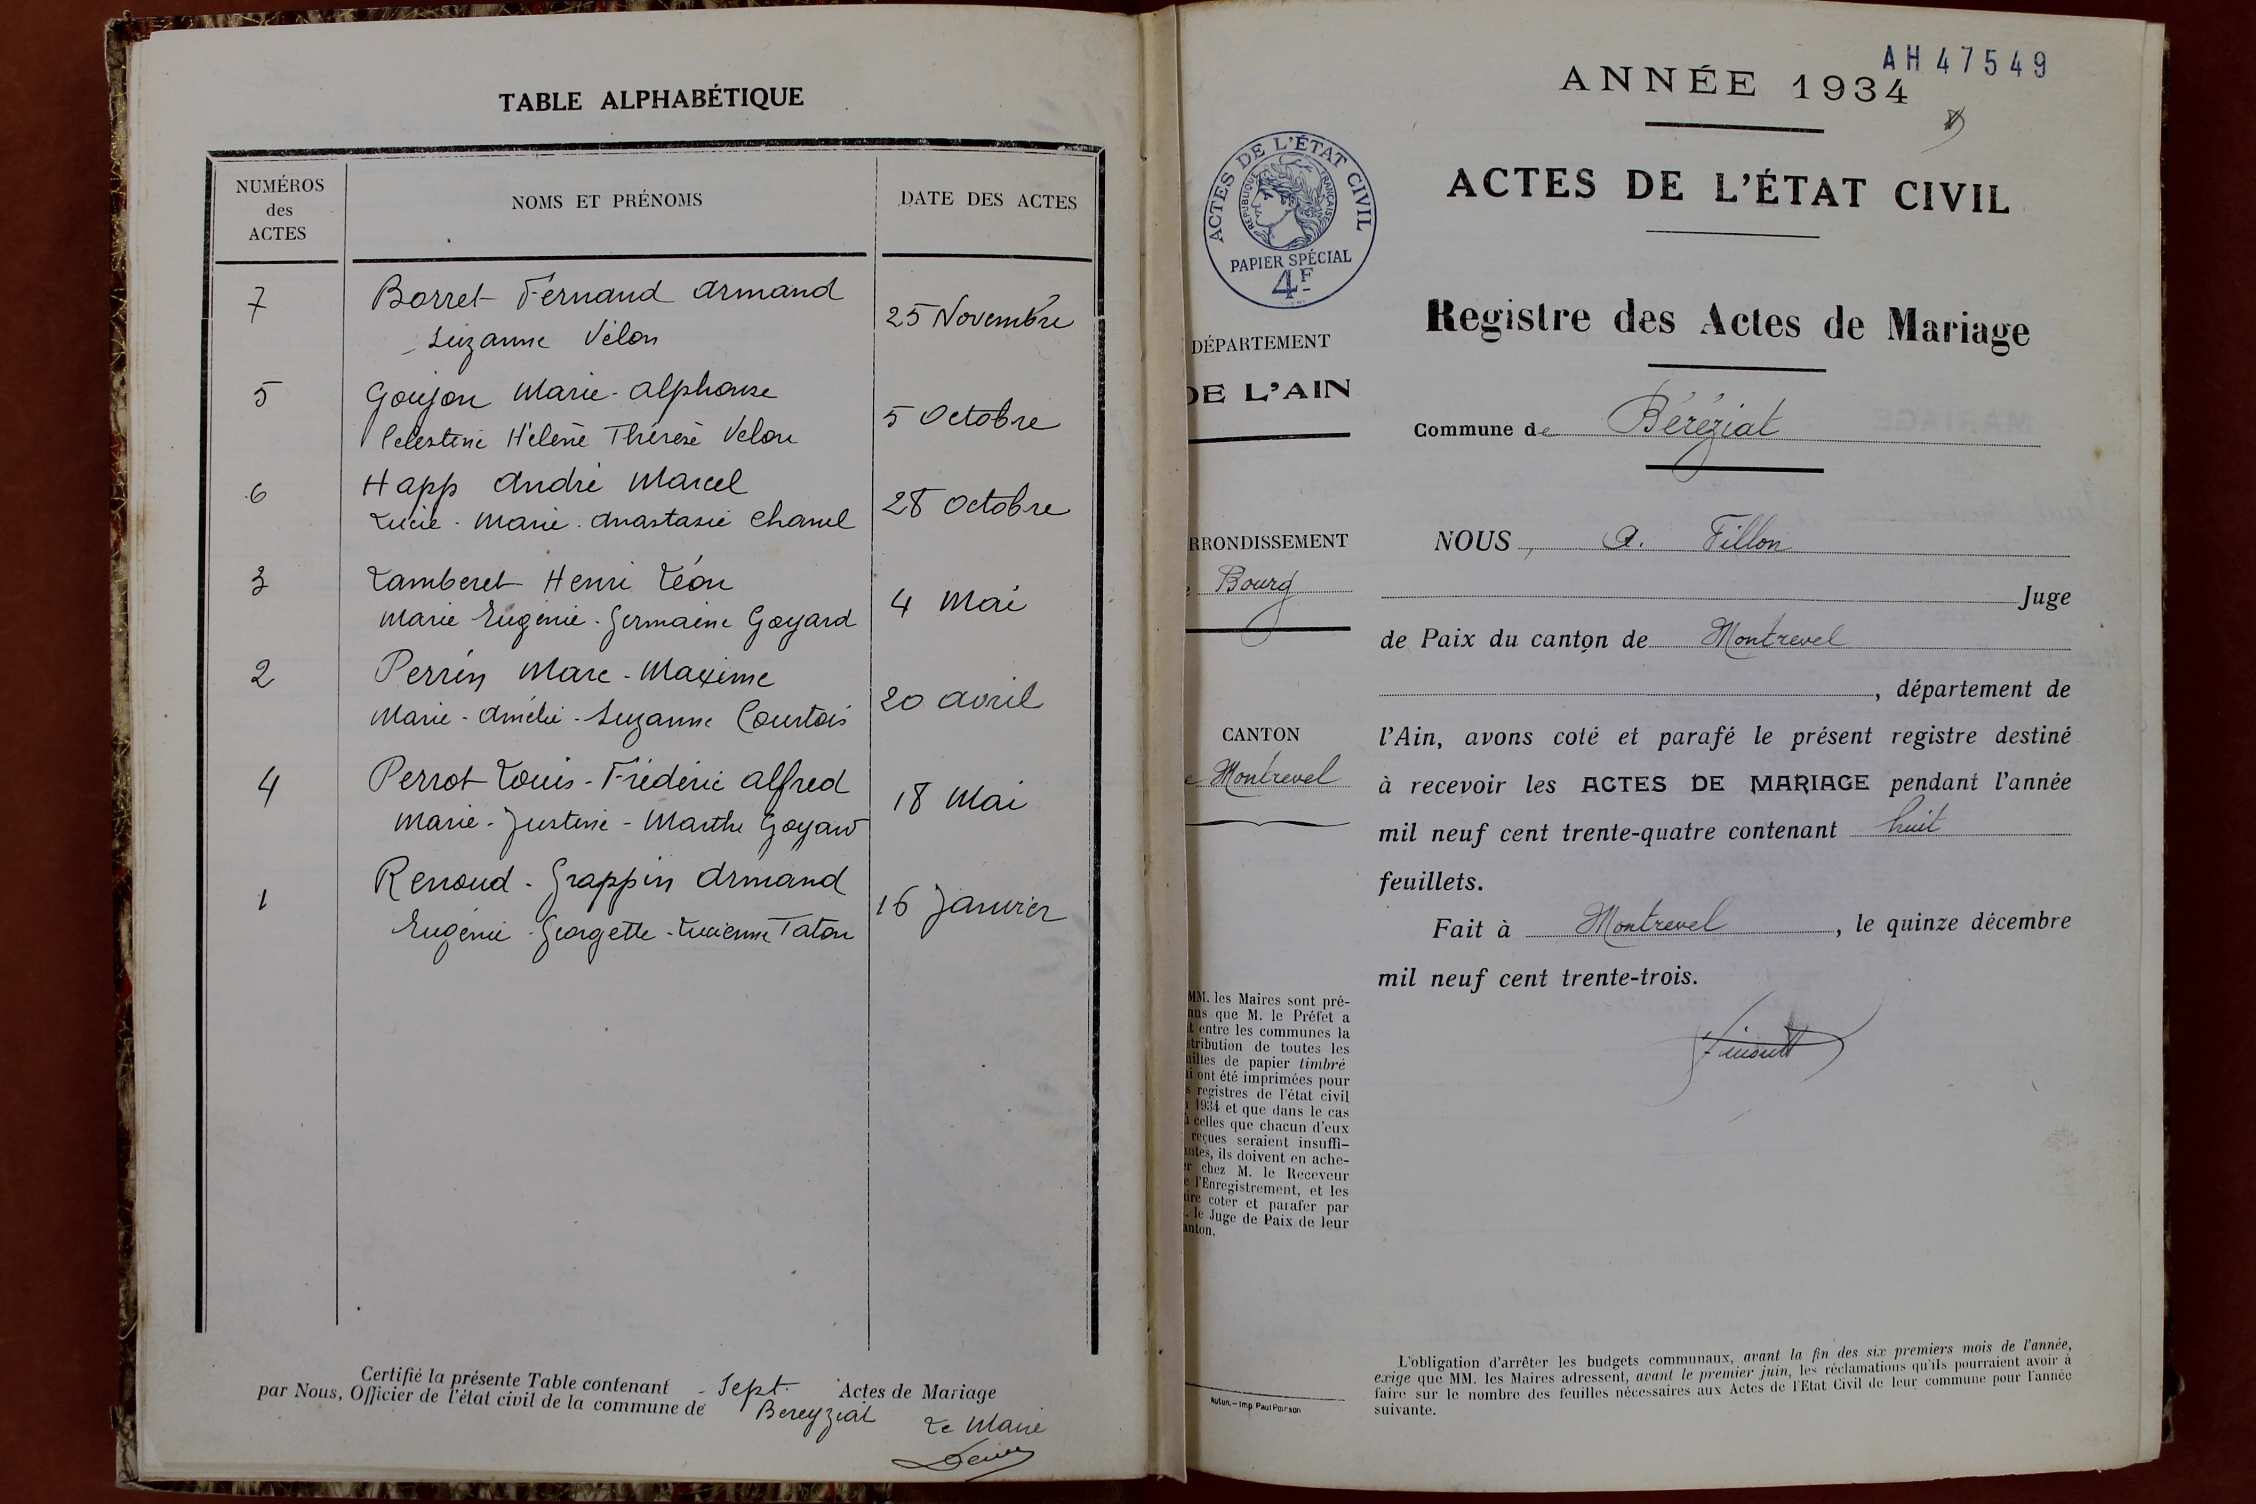 TABLE ALPHABÉTIQUE
NUMÉROS
des
ACTES
NOMS ET PRÉNOMS
DATE DES ACTES
7
Borret Fernand Armand
Suzanne Vélon
25 Novembre
5
Goujon Marie-Alphonse
Celestine Hélène Thérèse Velon
5 Octobre
6
Happ André Marcel
Lucie-Marie-Anastasie Chanel
28 Octobre
3
Lamberet Henri Léon
Marie Eugénie-Germaine Goyard
4 Mai
2
Perrin Marc-Maxime
Marie-Amélie-Suzanne Courtois
20 avril
4
Perrot Louis-Frédéric Alfred
Marie-Justine-Marthe Goyard
18 Mai
1
Renoud-Grappin Armand
Eugénie-Georgette-Lucienne Taton
16 Janvier
Certifié la présente Table contenant Sept Actes de Mariage
par Nous, Officier de l'état civil de la commune de Bereyziat
Le Maire
AH 47549
ANNÉE 1934
ACTES DE L'ÉTAT CIVIL
RÉPUBLIQUE FRANÇAISE
PAPIER SPÉCIAL
4F
ACTES DE L'ÉTAT CIVIL
Registre des Actes de Mariage
DÉPARTEMENT
DE L'AIN
Commune de Béréziat
RRONDISSEMENT
Bourg
CANTON
e Montrevel
NOUS, A. Fillon
Juge
de Paix du canton de Montrevel
, département de
l'Ain, avons coté et parafé le présent registre destiné
à recevoir les ACTES DE MARIAGE pendant l'année
mil neuf cent trente-quatre contenant huit
feuillets.
Fait à Montrevel, le quinze décembre
mil neuf cent trente-trois.
MM. les Maires sont pré-
nus que M. le Préfet a
t entre les communes la
tribution de toutes les
uilles de papier timbré
i ont été imprimées pour
s registres de l'état civil
1934 et que dans le cas
celles que chacun d'eux
reçues seraient insuffi-
ntes, ils doivent en ache-
r chez M. le Receveur
e l'Enregistrement, et les
ire coter et parafer par
. le Juge de Paix de leur
anton.
Autun. — Imp. Paul Poirson
L'obligation d'arrêter les budgets communaux, avant la fin des six premiers mois de l'année,
exige que MM. les Maires adressent, avant le premier juin, les réclamations qu'ils pourraient avoir à
faire sur le nombre des feuilles nécessaires aux Actes de l'Etat Civil de leur commune pour l'année
suivante.